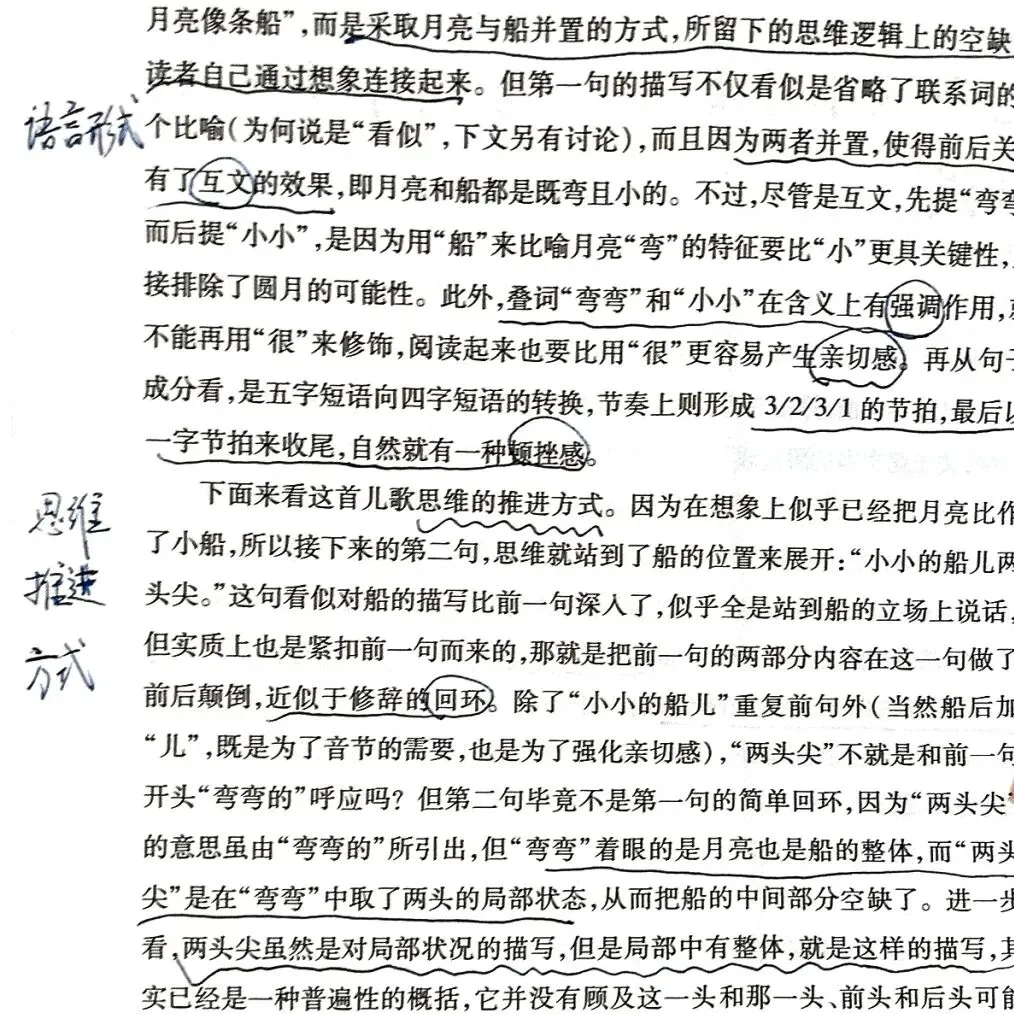 月亮像条船”，而是采取月亮与船并置的方式，所留下的思维逻辑上的空缺
读者自己通过想象连接起来。但第一句的描写不仅看似是省略了联系词的
语言形式
个比喻（为何说是“看似”，下文另有讨论），而且因为两者并置，使得前后关
有了互文的效果，即月亮和船都是既弯且小的。不过，尽管是互文，先提“弯弯
而后提“小小”，是因为用“船”来比喻月亮“弯”的特征要比“小”更具关键性，
接排除了圆月的可能性。此外，叠词“弯弯”和“小小”在含义上有强调作用，
不能再用“很”来修饰，阅读起来也要比用“很”更容易产生亲切感。再从句子
成分看，是五字短语向四字短语的转换，节奏上则形成 3/2/3/1 的节拍，最后以
一字节拍来收尾，自然就有一种顿挫感。
思维
推进
方式
下面来看这首儿歌思维的推进方式。因为在想象上似乎已经把月亮比作
了小船，所以接下来的第二句，思维就站到了船的位置来展开：“小小的船儿两
头尖。”这句看似对船的描写比前一句深入了，似乎全是站到船的立场上说话，
但实质上也是紧扣前一句而来的，那就是把前一句的两部分内容在这一句做了
前后颠倒，近似于修辞的回环。除了“小小的船儿”重复前句外（当然船后加
“儿”，既是为了音节的需要，也是为了强化亲切感），“两头尖”不就是和前一句
开头“弯弯的”呼应吗？但第二句毕竟不是第一句的简单回环，因为“两头尖”
的意思虽由“弯弯的”所引出，但“弯弯”着眼的是月亮也是船的整体，而“两头
尖”是在“弯弯”中取了两头的局部状态，从而把船的中间部分空缺了。进一步
看，两头尖虽然是对局部状况的描写，但是局部中有整体，就是这样的描写，其
实已经是一种普遍性的概括，它并没有顾及这一头和那一头、前头和后头可能